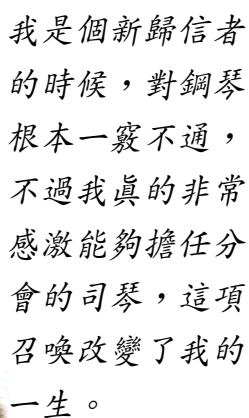 我是個新歸信者
的時候，對鋼琴
根本一竅不通，
不過我真的非常
感激能夠擔任分
會的司琴，這項
召喚改變了我的
一生。